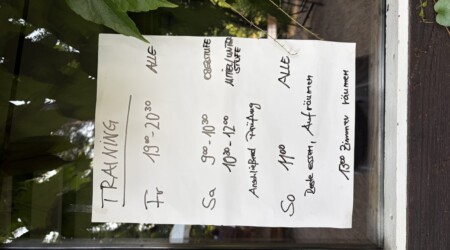 TRAINING
Fr 19⁰⁰-20³⁰ ALLE
Sa 9⁰⁰-10³⁰ OBERSTUFE
10³⁰-12⁰⁰ MITTEL/UNTERSTUFE
Anschließend Prüfung
So 11⁰⁰ ALLE
Reste essen, Aufräumen
13⁰⁰ Zimmer räumen